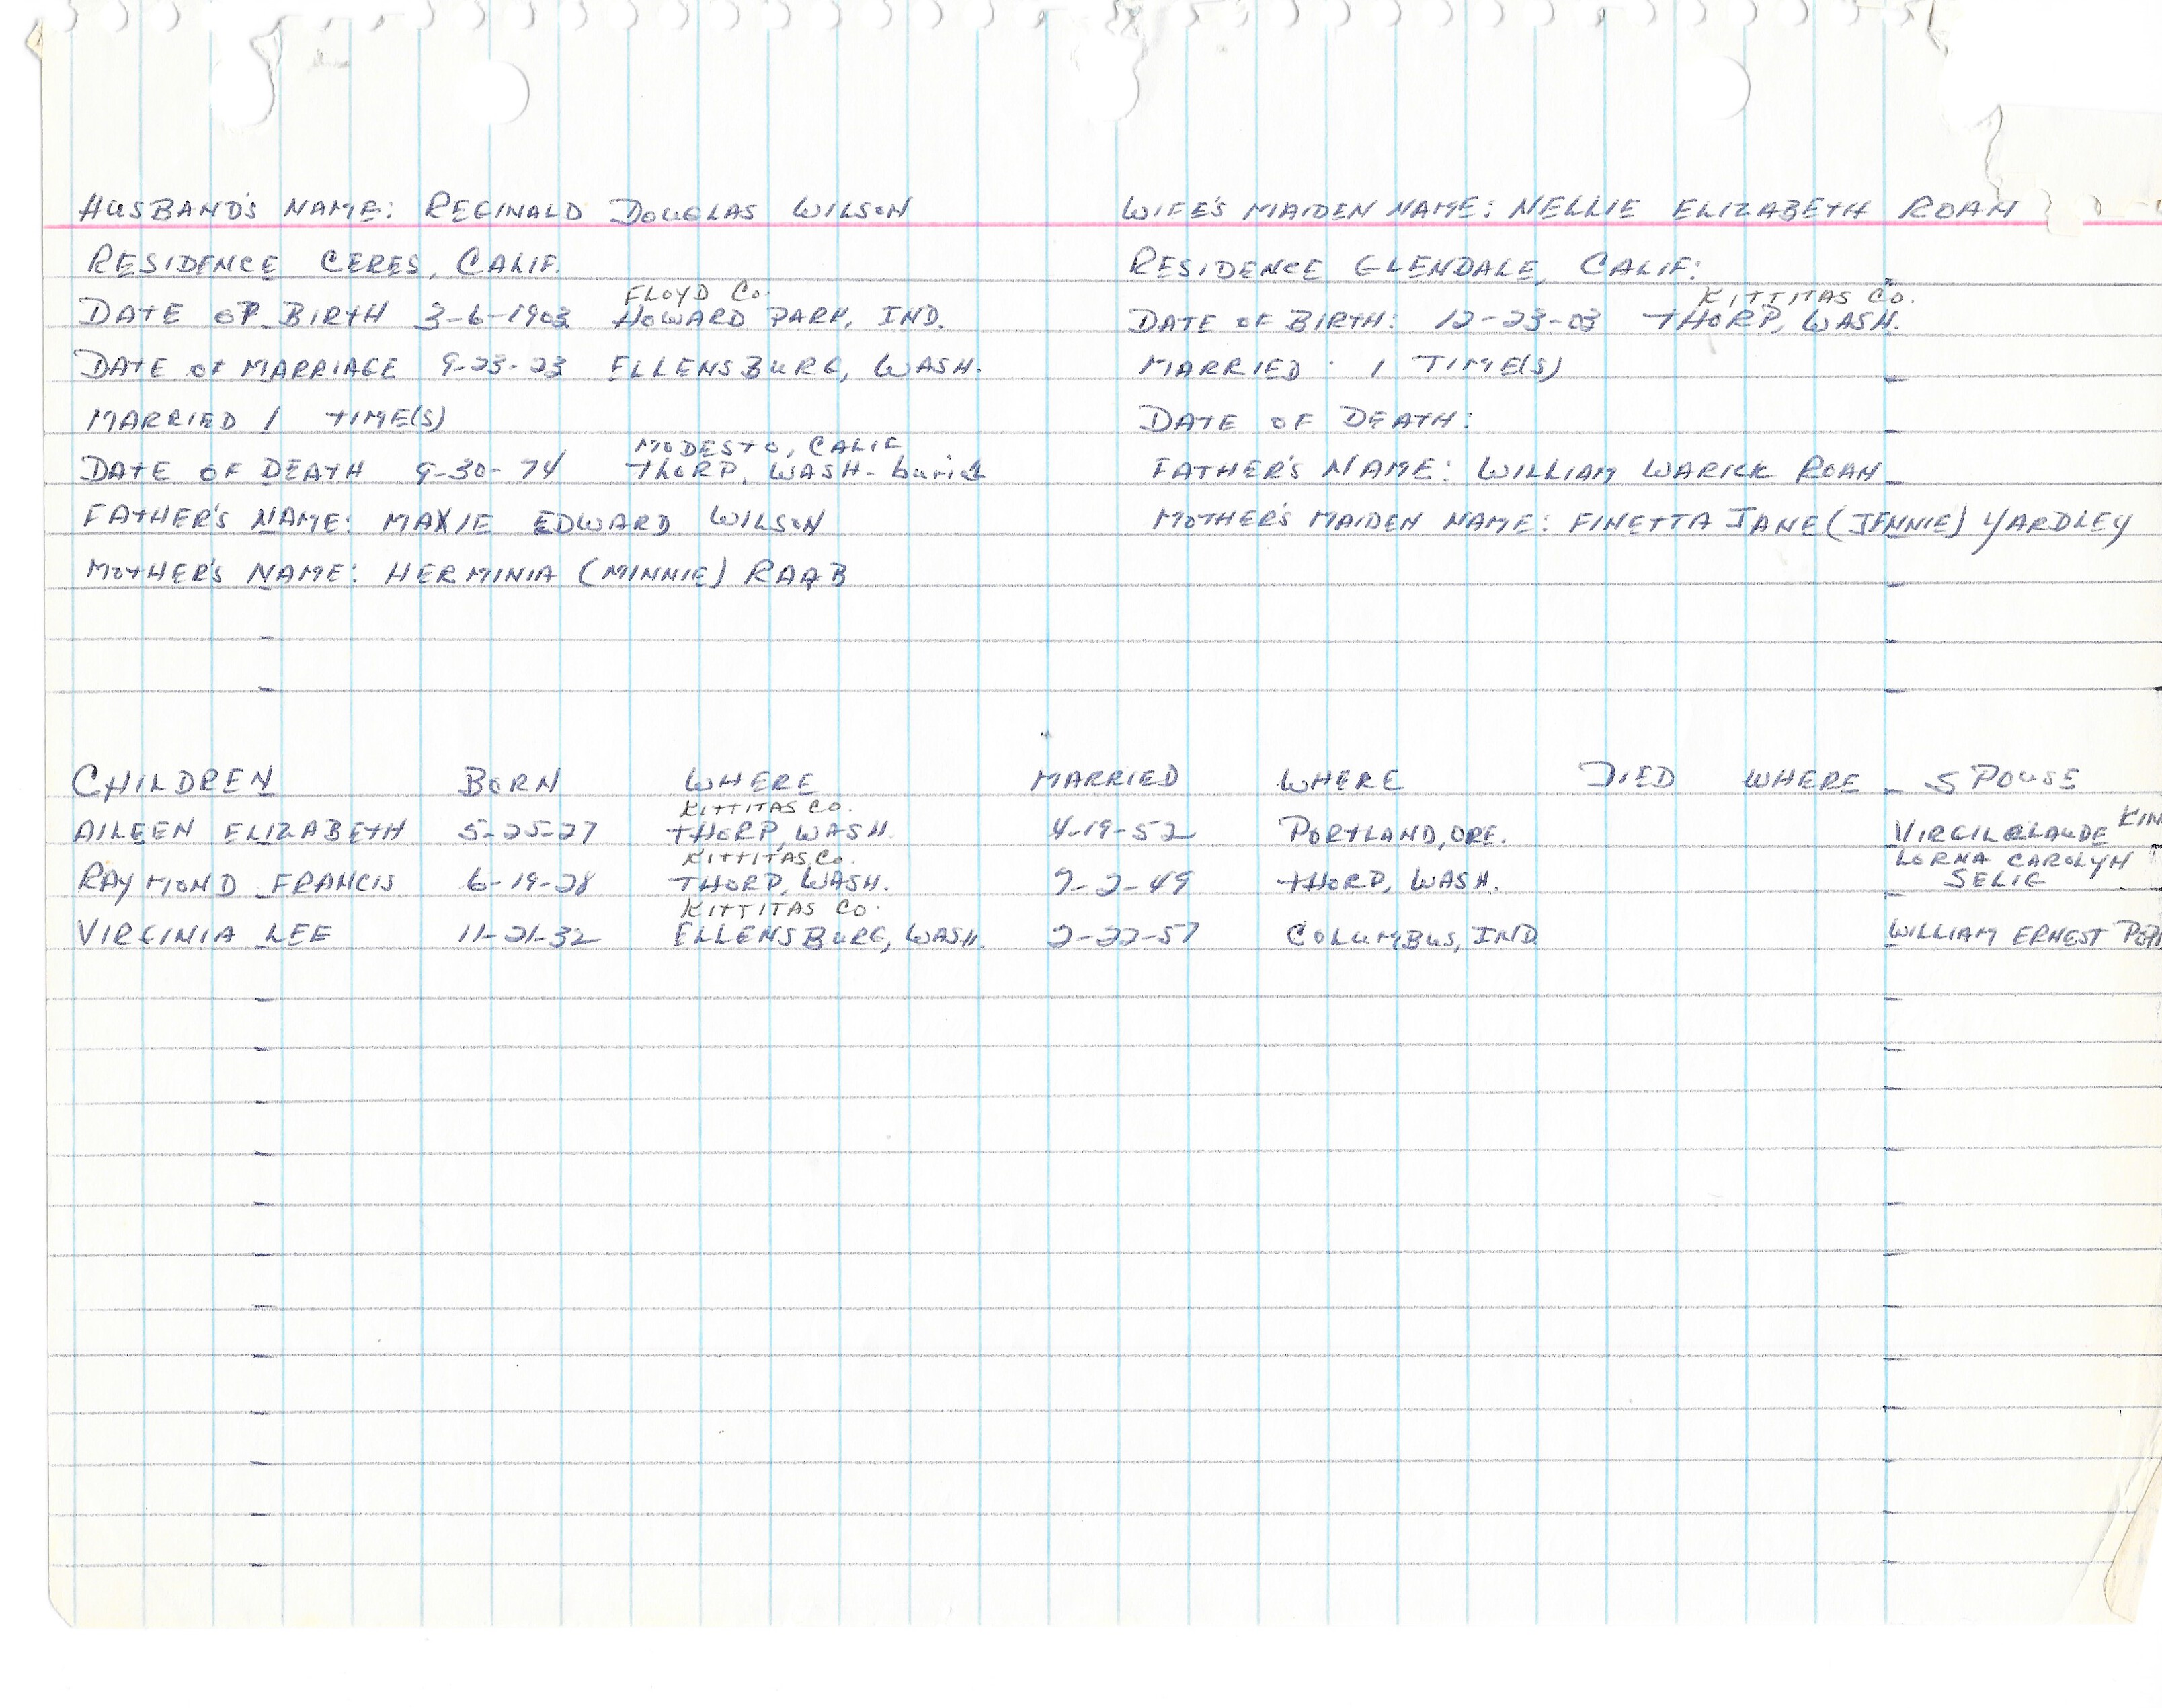 HUSBAND'S NAME: REGINALD DOUGLAS WILSON
RESIDENCE CERES, CALIF.
FLOYD CO.
DATE OF BIRTH 3-6-1903 HOWARD PARK, IND.
DATE OF MARRIAGE 9-23-23 ELLENSBURG, WASH.
MARRIED 1 TIME(S)
MODESTO, CALIF
DATE OF DEATH 9-30-74 THORP, WASH-burial
FATHER'S NAME: MAXIE EDWARD WILSON
MOTHER'S NAME: HERMINIA (MINNIE) RAAB
WIFE'S MAIDEN NAME: NELLIE ELIZABETH ROAN
RESIDENCE GLENDALE, CALIF:
KITTITAS CO.
DATE OF BIRTH: 12-23-03 THORP, WASH.
MARRIED 1 TIME(S)
DATE OF DEATH:
FATHER'S NAME: WILLIAM WARICK ROAN
MOTHER'S MAIDEN NAME: FINETTA JANE (JENNIE) YARDLEY
CHILDREN BORN WHERE MARRIED WHERE DIED WHERE SPOUSE
KITTITAS CO.
AILEEN ELIZABETH 5-25-27 THORP, WASH. 4-19-52 PORTLAND, ORE. VIRGIL CLAUDE KIN
KITTITAS CO. LORNA CAROLYN
RAYMOND FRANCIS 6-19-28 THORP, WASH. 7-2-49 THORP, WASH. SELIG
KITTITAS CO.
VIRGINIA LEE 11-21-32 ELLENSBURG, WASH. 2-22-57 COLUMBUS, IND. WILLIAM ERNEST